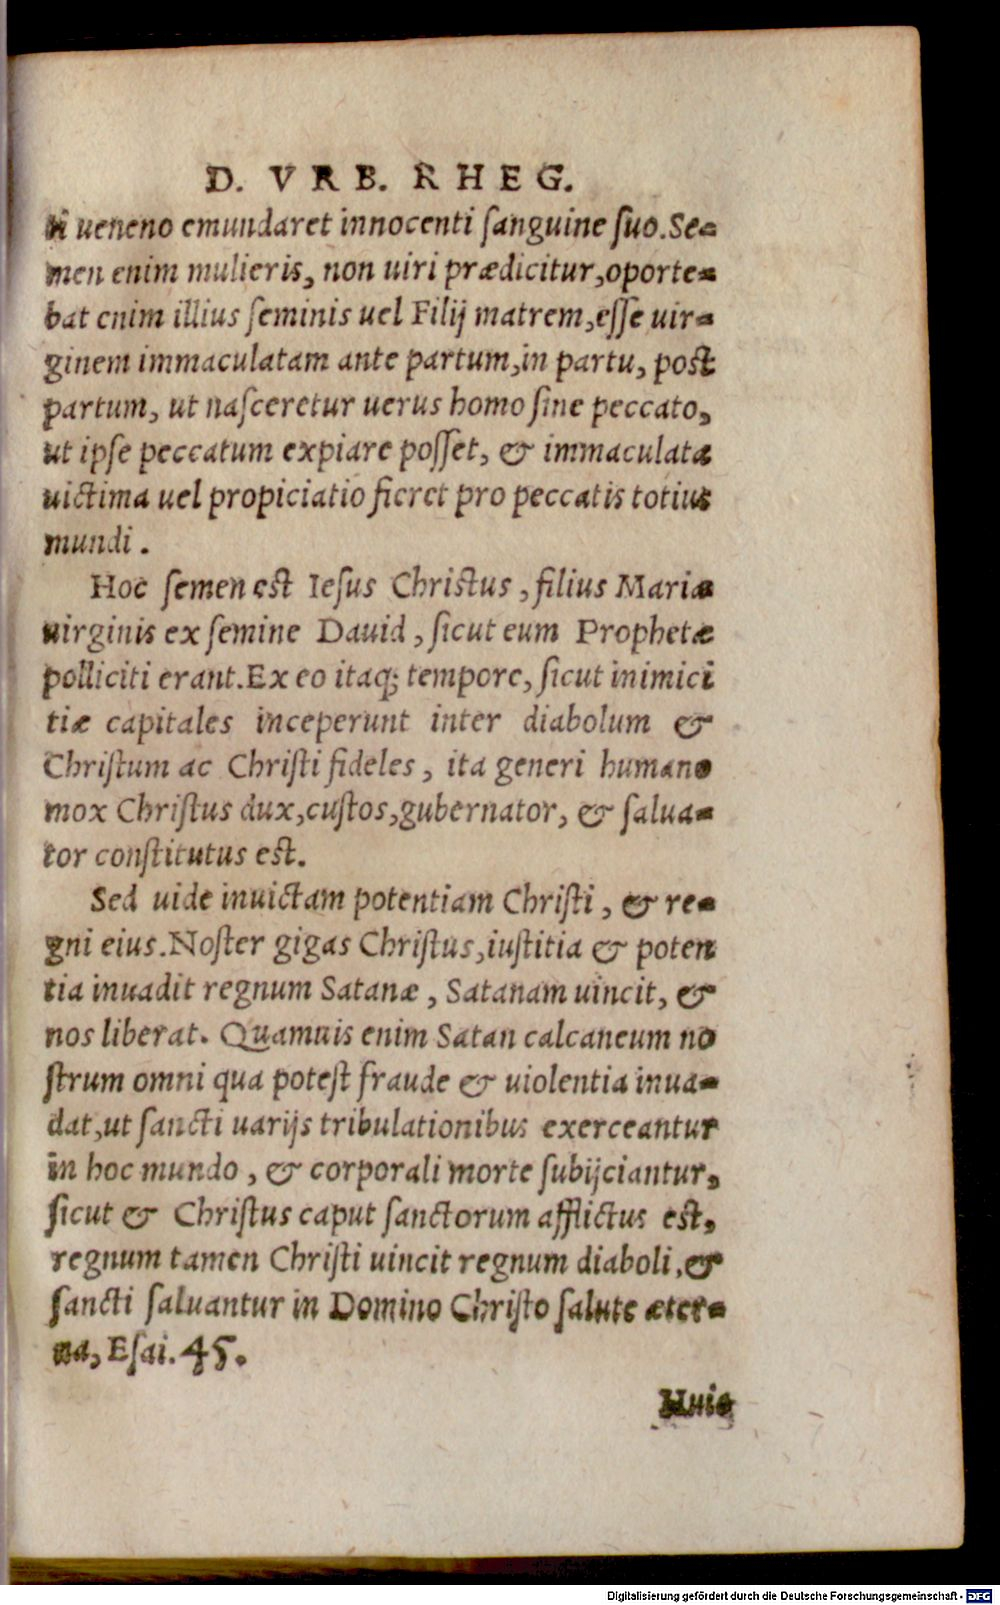 D. VRB. RHEG.
ti ueneno emundaret innocenti ſanguine ſuo. Se-
men enim mulieris, non uiri prædicitur, oporte-
bat enim illius ſeminis uel Filij matrem, eſſe uir-
ginem immaculatam ante partum, in partu, post
partum, ut naſceretur uerus homo ſine peccato,
ut ipſe peccatum expiare poſſet, & immaculata
uictima uel propiciatio fieret pro peccatis totius
mundi.
Hoc ſemen est Ieſus Christus, filius Mariæ
uirginis ex ſemine Dauid, ſicut eum Prophetæ
polliciti erant. Ex eo itaq; tempore, ſicut inimici
tiæ capitales inceperunt inter diabolum &
Chriſtum ac Chriſti fideles, ita generi humano
mox Chriſtus dux, cuſtos, gubernator, & ſalua-
tor conſtitutus est.
Sed uide inuictam potentiam Chriſti, & re-
gni eius. Noſter gigas Chriſtus, iuſtitia & poten
tia inuadit regnum Satanæ, Satanam uincit, &
nos liberat. Quamuis enim Satan calcaneum no
ſtrum omni qua poteſt fraude & uiolentia inua-
dat, ut ſancti uarijs tribulationibus exerceantur
in hoc mundo, & corporali morte ſubijciantur,
ſicut & Chriſtus caput ſanctorum afflictus est,
regnum tamen Chriſti uincit regnum diaboli, &
ſancti ſaluantur in Domino Chriſto ſalute æter-
na, Eſai. 45.
Huic
Digitalisierung gefördert durch die Deutsche Forschungsgemeinschaft - DFG